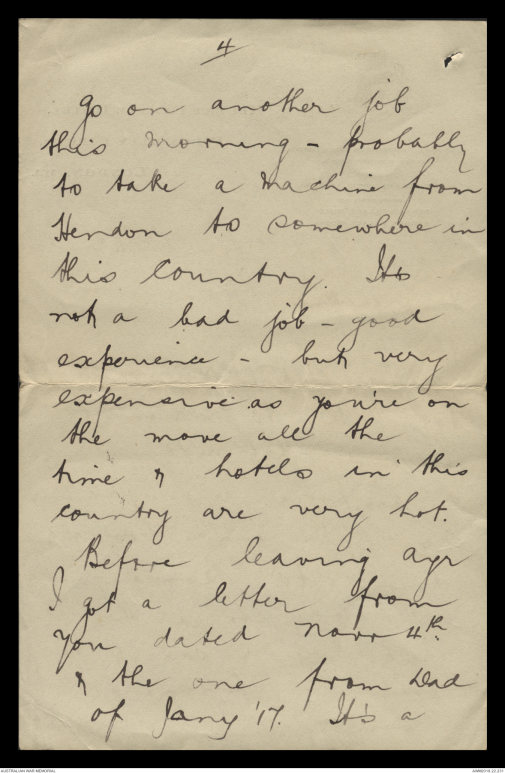 4
go on another job
this morning - probably
to take a machine from
Hendon to somewhere in
this country. Its
not a bad job - good
experience - but very
expensive as you're on
the move all the
time & hotels in this
country are very hot.
Before leaving Ayr
I got a letter from
you dated Novr 4th.
& the one from Dad
of Jany '17. It's a
AUSTRALIAN WAR MEMORIAL